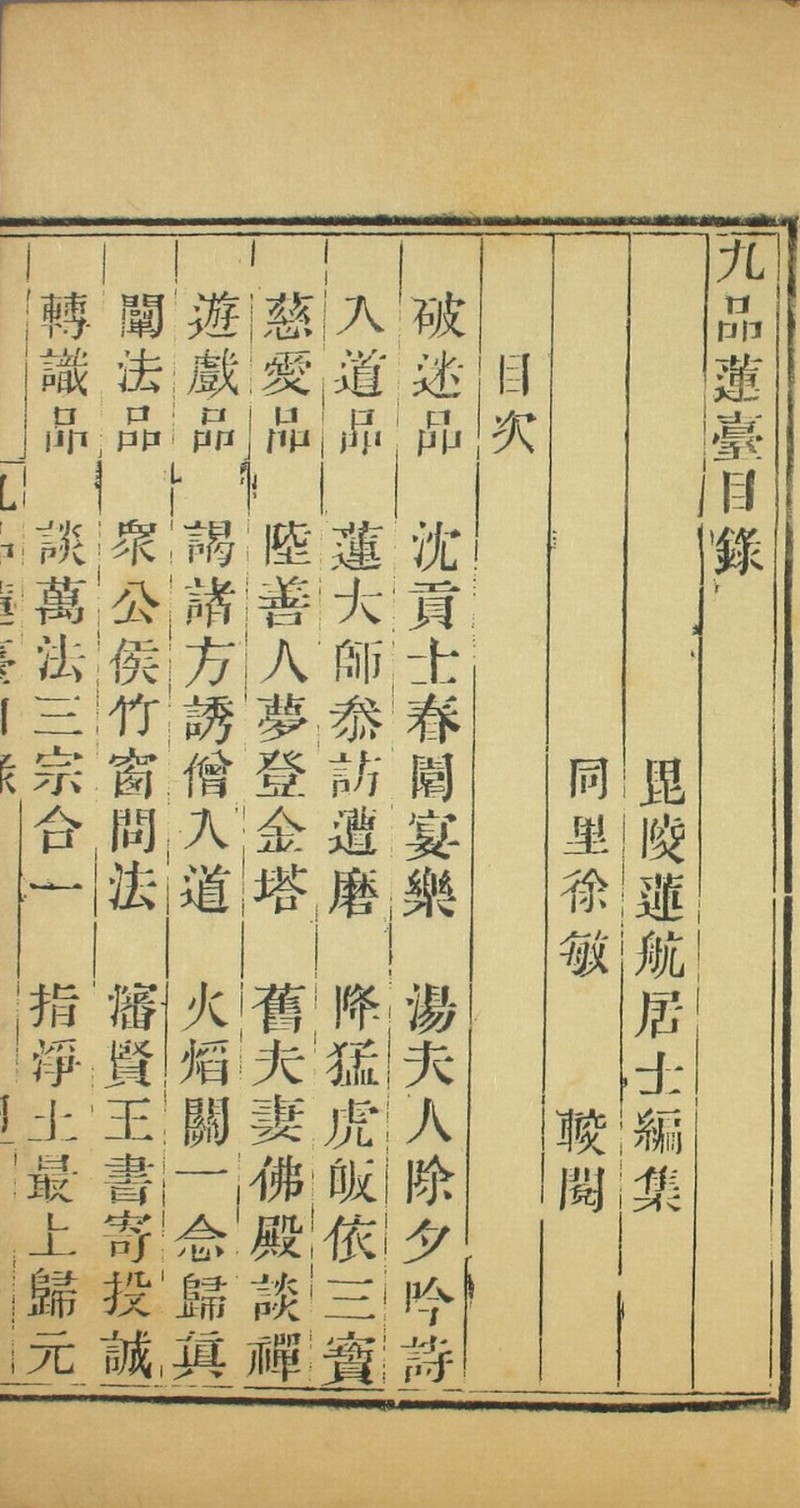 九品蓮臺目錄
毘陵蓮航居士編集
同里徐敏　較閱
目次
破迷品　沈貢士春闈宴樂　湯夫人除夕吟詩
入道品　蓮大師叅訪遭磨　降猛虎皈依三寶
慈愛品　陸善人夢登金塔　舊夫妻佛殿談禪
遊戲品　謁諸方誘僧入道　火焰關一念歸眞
闡法品　衆公侯竹窗問法　瀋賢王書寄投誠
轉識品　談萬法三宗合一　指淨土最上歸元